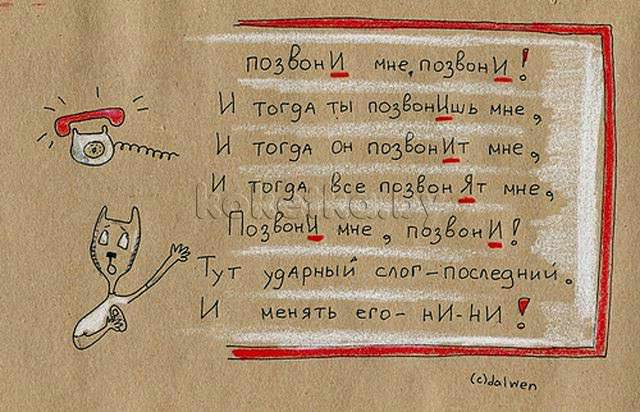 позвонИ мне, позвонИ!
И тогда ты позвонИшь мне,
И тогда он позвонИт мне,
И тогда все позвонЯт мне,
ПозвонИ мне, позвонИ!
Тут ударный слог-последний.
И менять его- нИ-НИ!
koketka.by
(c)dalwen